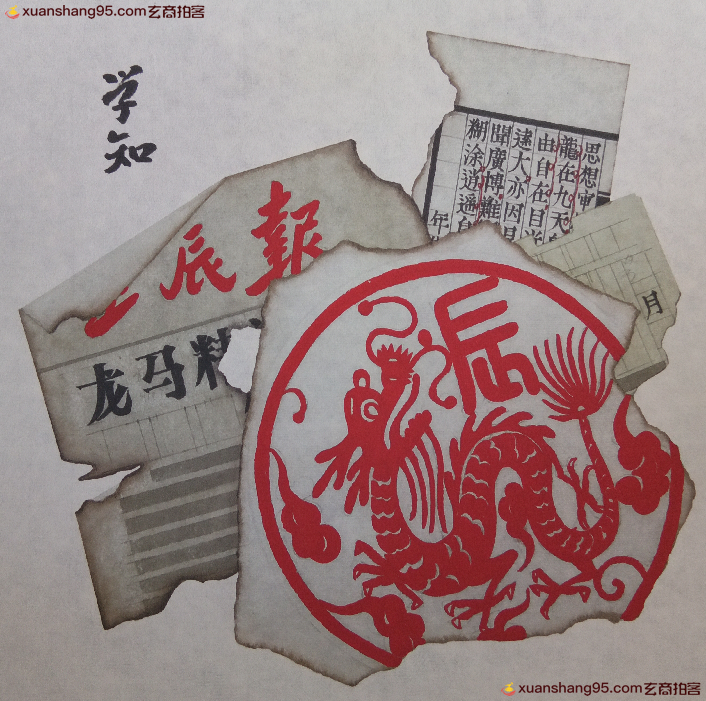 xuanshang95.com玄商拍客
学知
思想
龍在九天
由自在日
遠大亦因
聞廣博難
糊涂逍遥自
年
月
辰報
龙马精
辰
xuanshang95.com玄商拍客